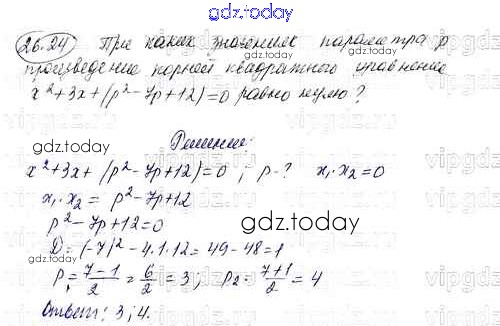 gdz.today
26.24 При каких значениях параметра p
произведение корней квадратного уравнения
x²+3x+(p²-7p+12)=0 равно нулю?
gdz.today
Решение:
x²+3x+(p²-7p+12)=0; p-? x₁·x₂=0
x₁·x₂ = p²-7p+12
p²-7p+12=0
gdz.today
D=(-7)²-4·1·12=49-48=1
p₁=7-1/2=6/2=3; p₂=7+1/2=4
Ответ: 3; 4.
gdz.today